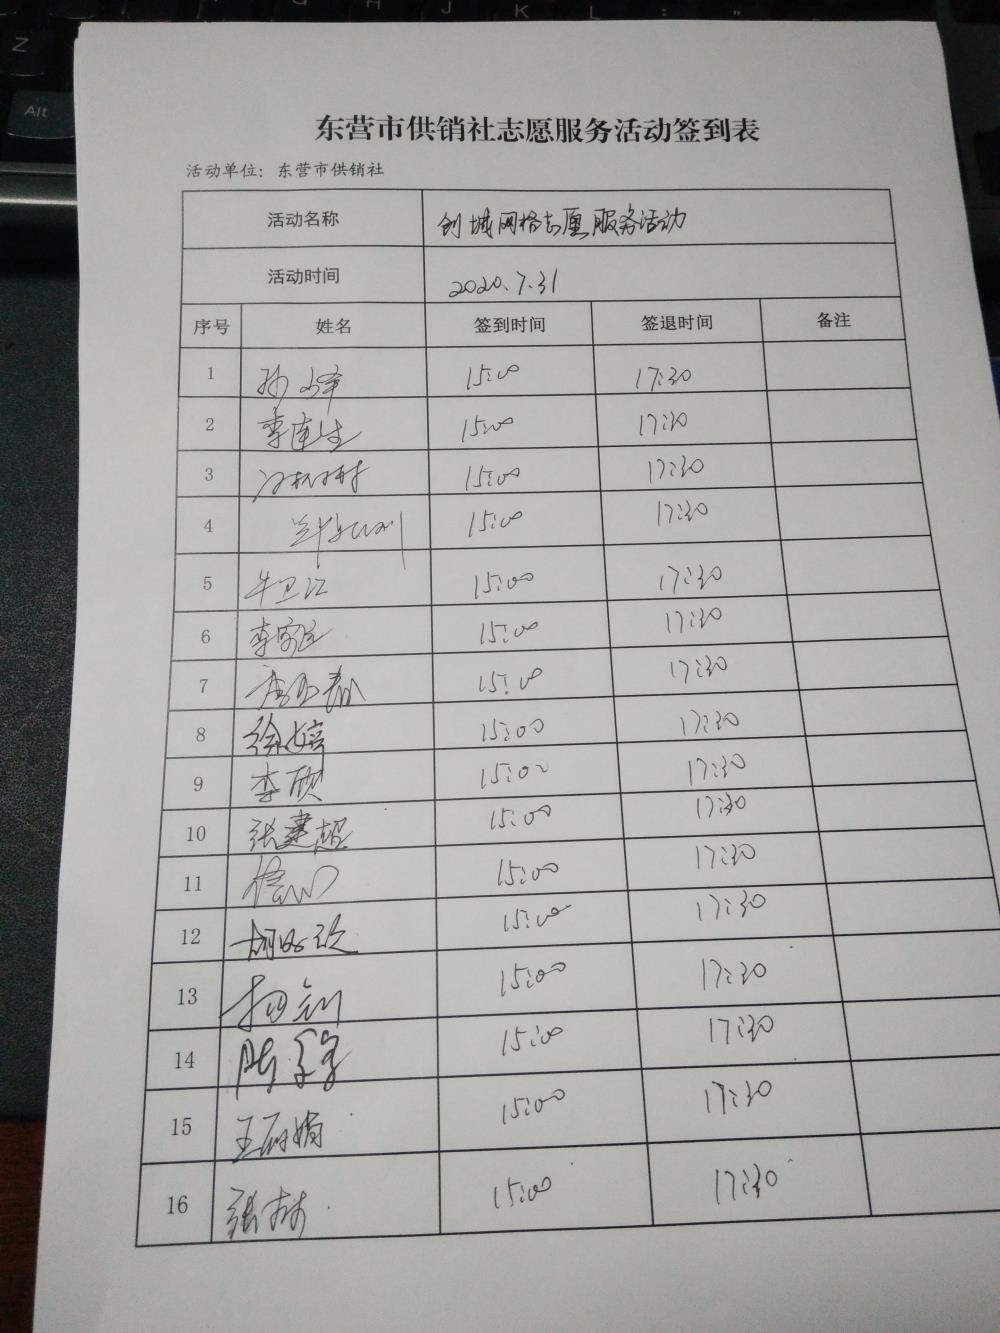 东营市供销社志愿服务活动签到表
活动单位：东营市供销社
活动名称 创城网格志愿服务活动
活动时间 2020.7.31
序号 姓名 签到时间 签退时间 备注
1 15:00 17:30
2 李连生 15:00 17:30
3 15:00 17:30
4 15:00 17:30
5 牛卫江 15:00 17:30
6 15:00 17:30
7 15:00 17:30
8 徐婷 15:00 17:30
9 李欣 15:00 17:30
10 张建超 15:00 17:30
11 15:00 17:30
12 15:00 17:30
13 杨剑 15:00 17:30
14 15:00 17:30
15 15:00 17:30
16 张林 15:00 17:30
Z
Alt
G
H
J
K
L